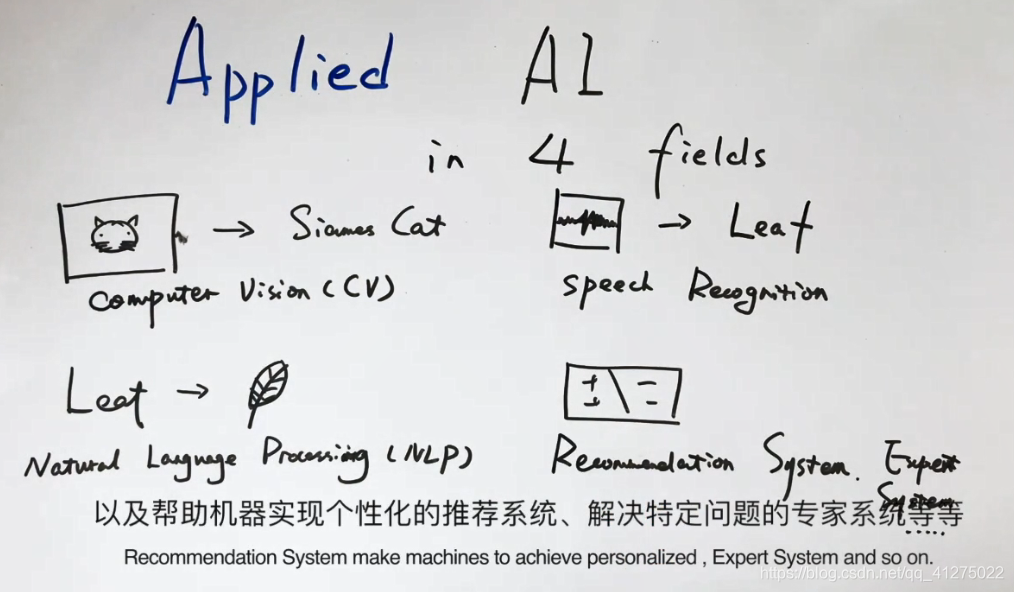 Applied AI
in 4 fields
→ Siames Cat
Computer Vision (CV)
→ Leaf
Speech Recognition
Leaf →
Natural Language Processing (NLP)
Recommendation System. Expert
System
......
以及帮助机器实现个性化的推荐系统、解决特定问题的专家系统等等
Recommendation System make machines to achieve personalized , Expert System and so on.
https://blog.csdn.net/qq_41275022